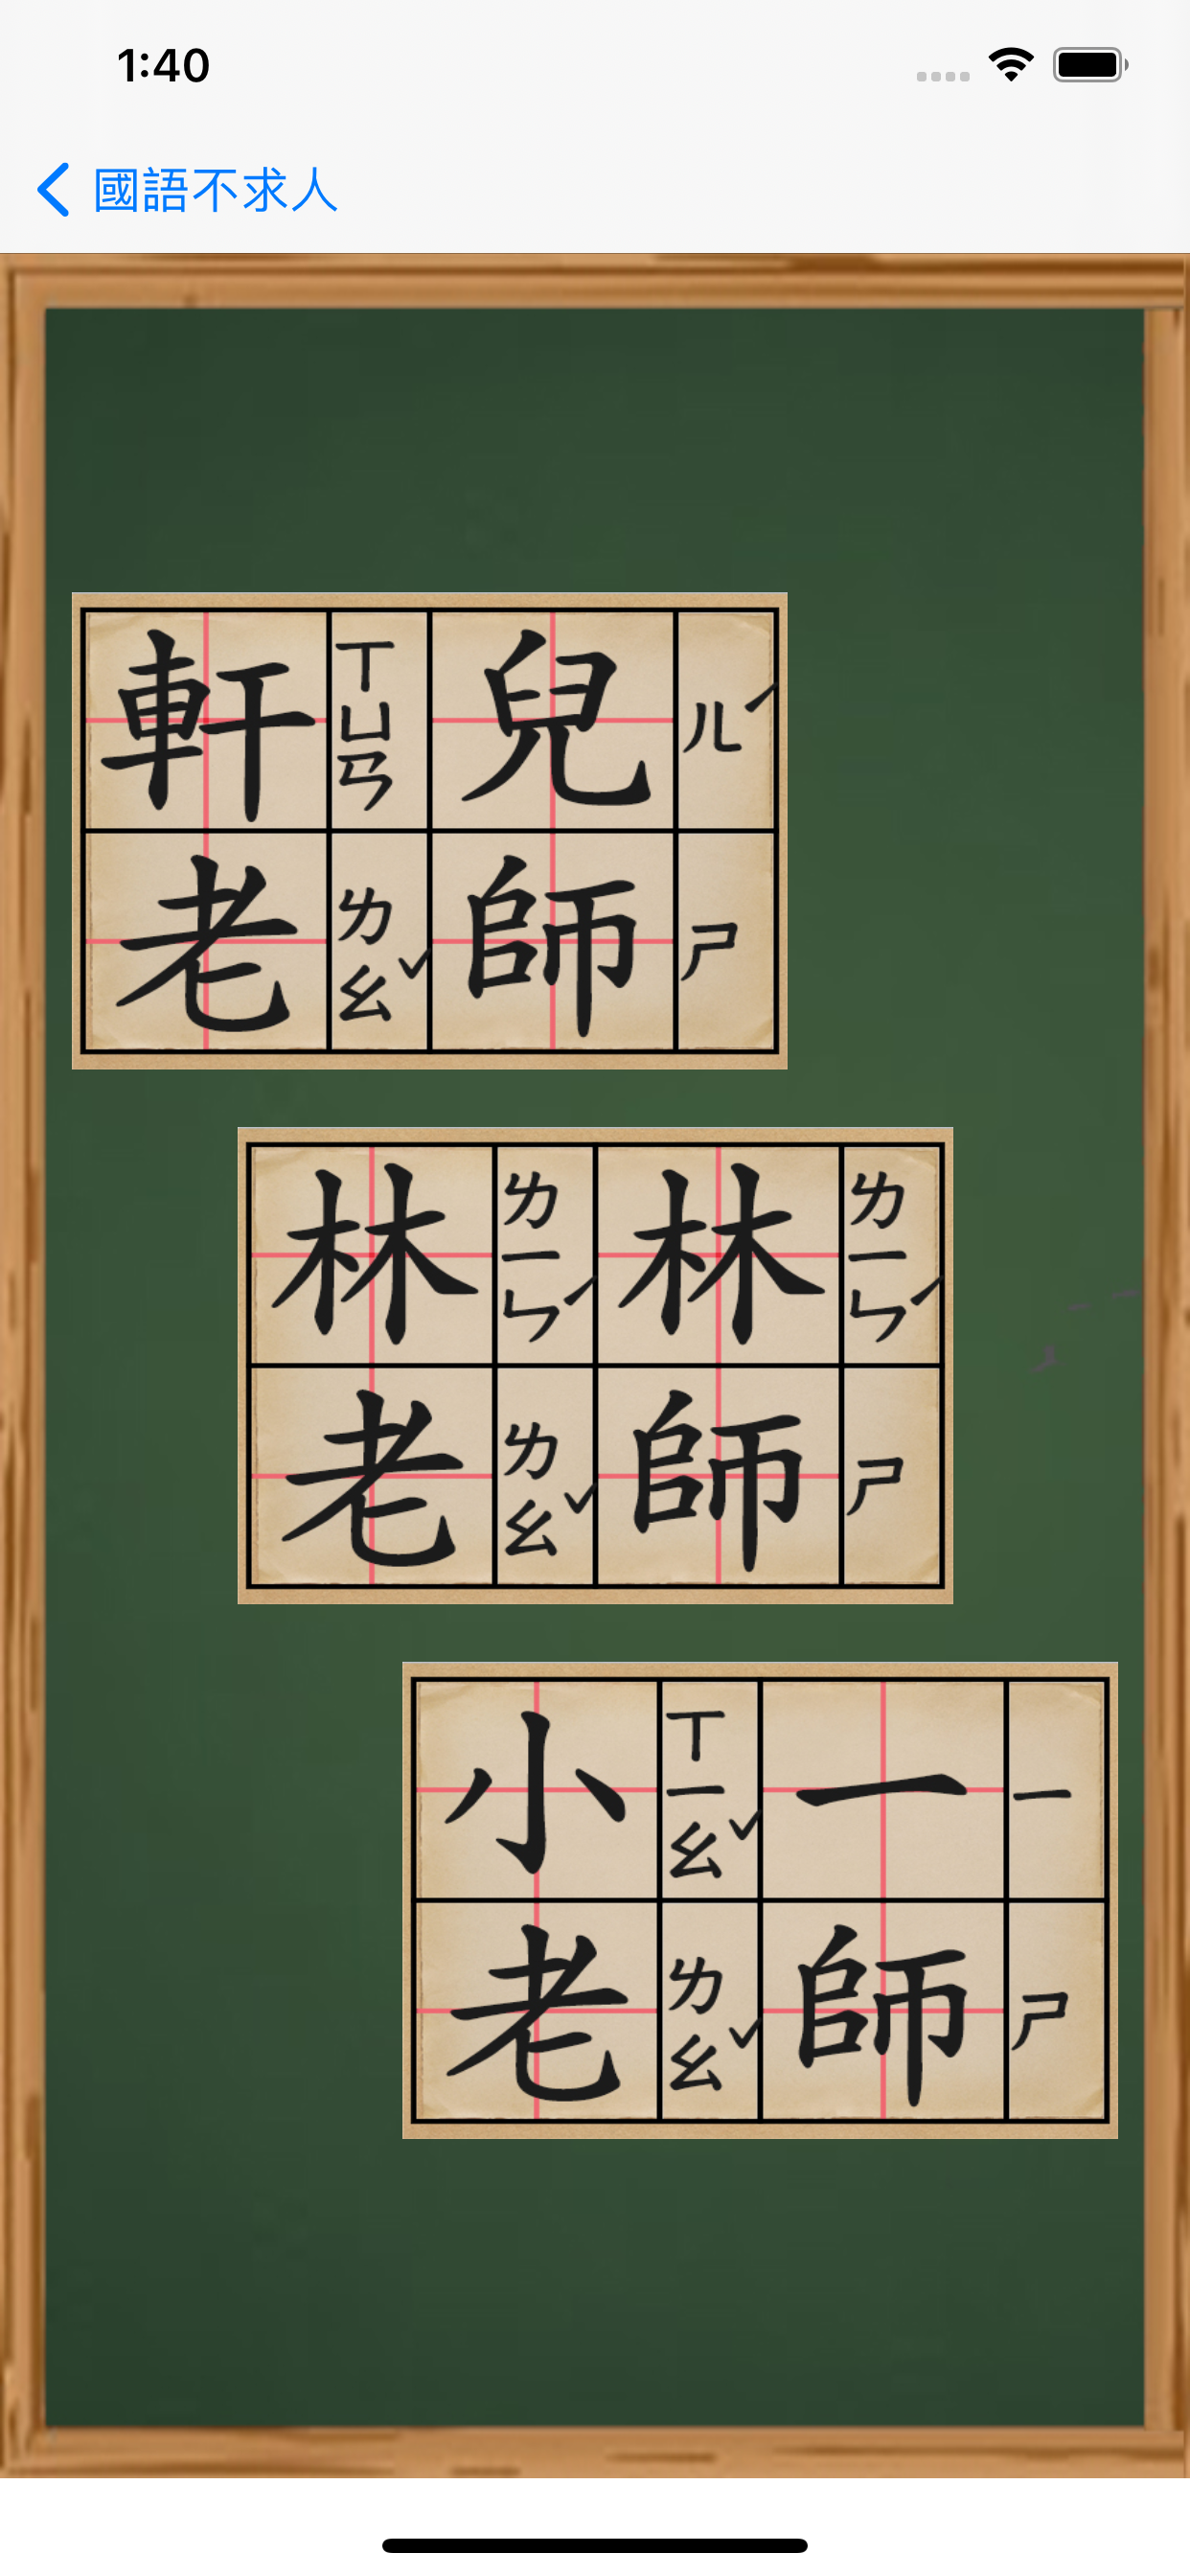 1:40
國語不求人
軒ㄒㄩㄢ兒ㄦˊ
老ㄌㄠˇ師ㄕ
林ㄌㄧㄣˊ林ㄌㄧㄣˊ
老ㄌㄠˇ師ㄕ
小ㄒㄧㄠˇ一ㄧ
老ㄌㄠˇ師ㄕ